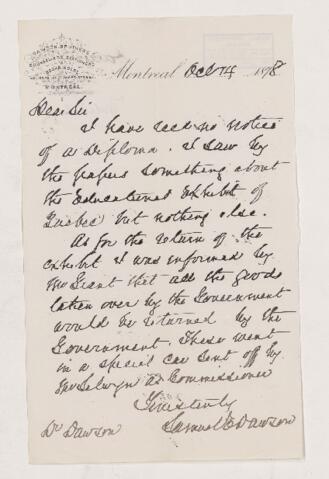 Montreal Oct 14 1878
Dear Sir
I have recd no notice
of a Diploma. I saw by
the papers something about
the Educational Exhibit of
Quebec but nothing else.
As for the return of the
exhibit I was informed by
Mr Grant that all the goods
taken over by the Government
would be returned by the
Government. These went
in a special car sent off by
Mr Selwyn as Commissioner
Yours truly
Dr Dawson
Samuel E Dawson